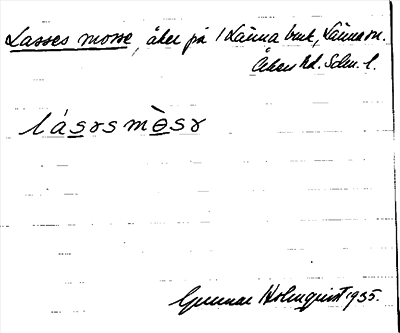 Lasses mosse, åker på 1 Länna bruk, Länna sn.
Åkers hd. Sdm. l.
lásɤsmòsɤ
Gunnar Holmquist 1935.